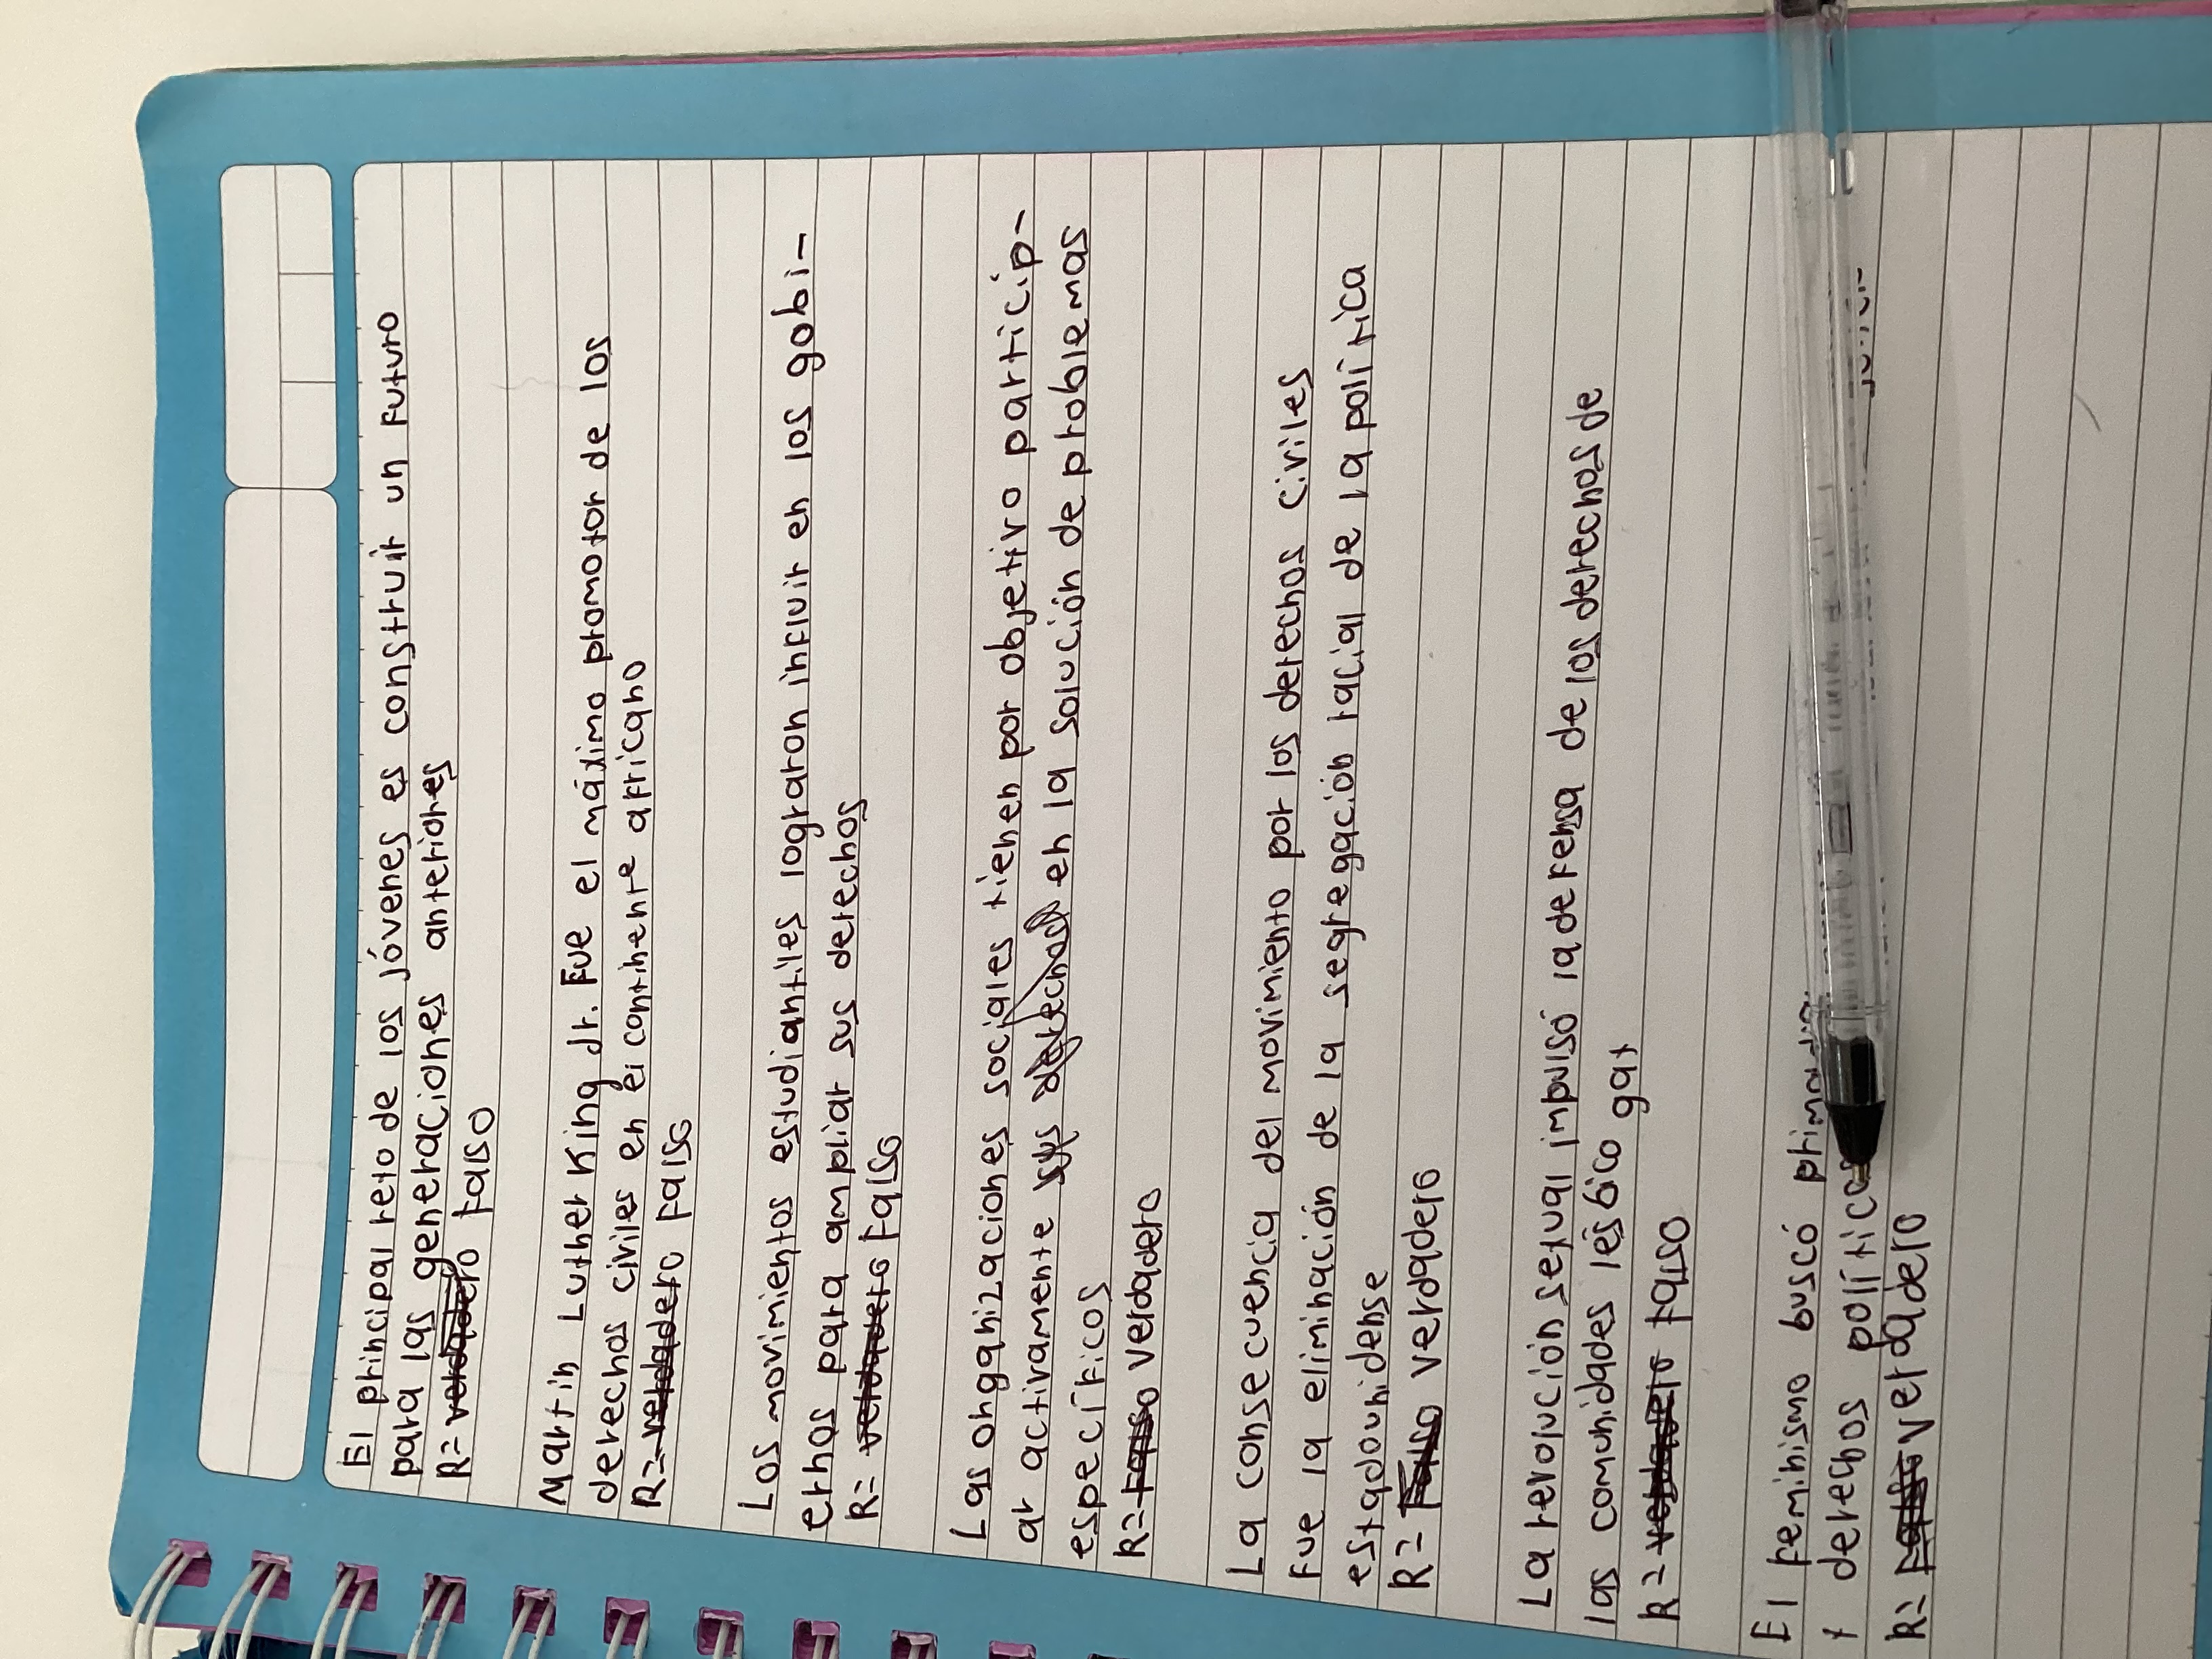 El principal reto de los jóvenes es construir un futuro
para las generaciones anteriores
R= verdadero falso
Martin Luther King dr. Fue el máximo promotor de los
derechos civiles en el continente africano
R= verdadero falso
Los movimientos estudiantiles lograron influir en los gobi-
ernos para ampliar sus derechos
R= verdadero falso
Las ongganizaciones sociales tienen por objetivo particip-
ar activamente sus derechos en la solución de problemas
específicos
R= Falso verdadero
La consecuencia del movimiento por los derechos civiles
Fue la eliminación de la segregación racial de la política
estadounidense
R= Falso verdadero
La revolución sexual impulsó la defensa de los derechos de
las comunidades lésbico gay
R= verdadero falso
El feminismo buscó
y derechos políticos
R= Falso verdadero